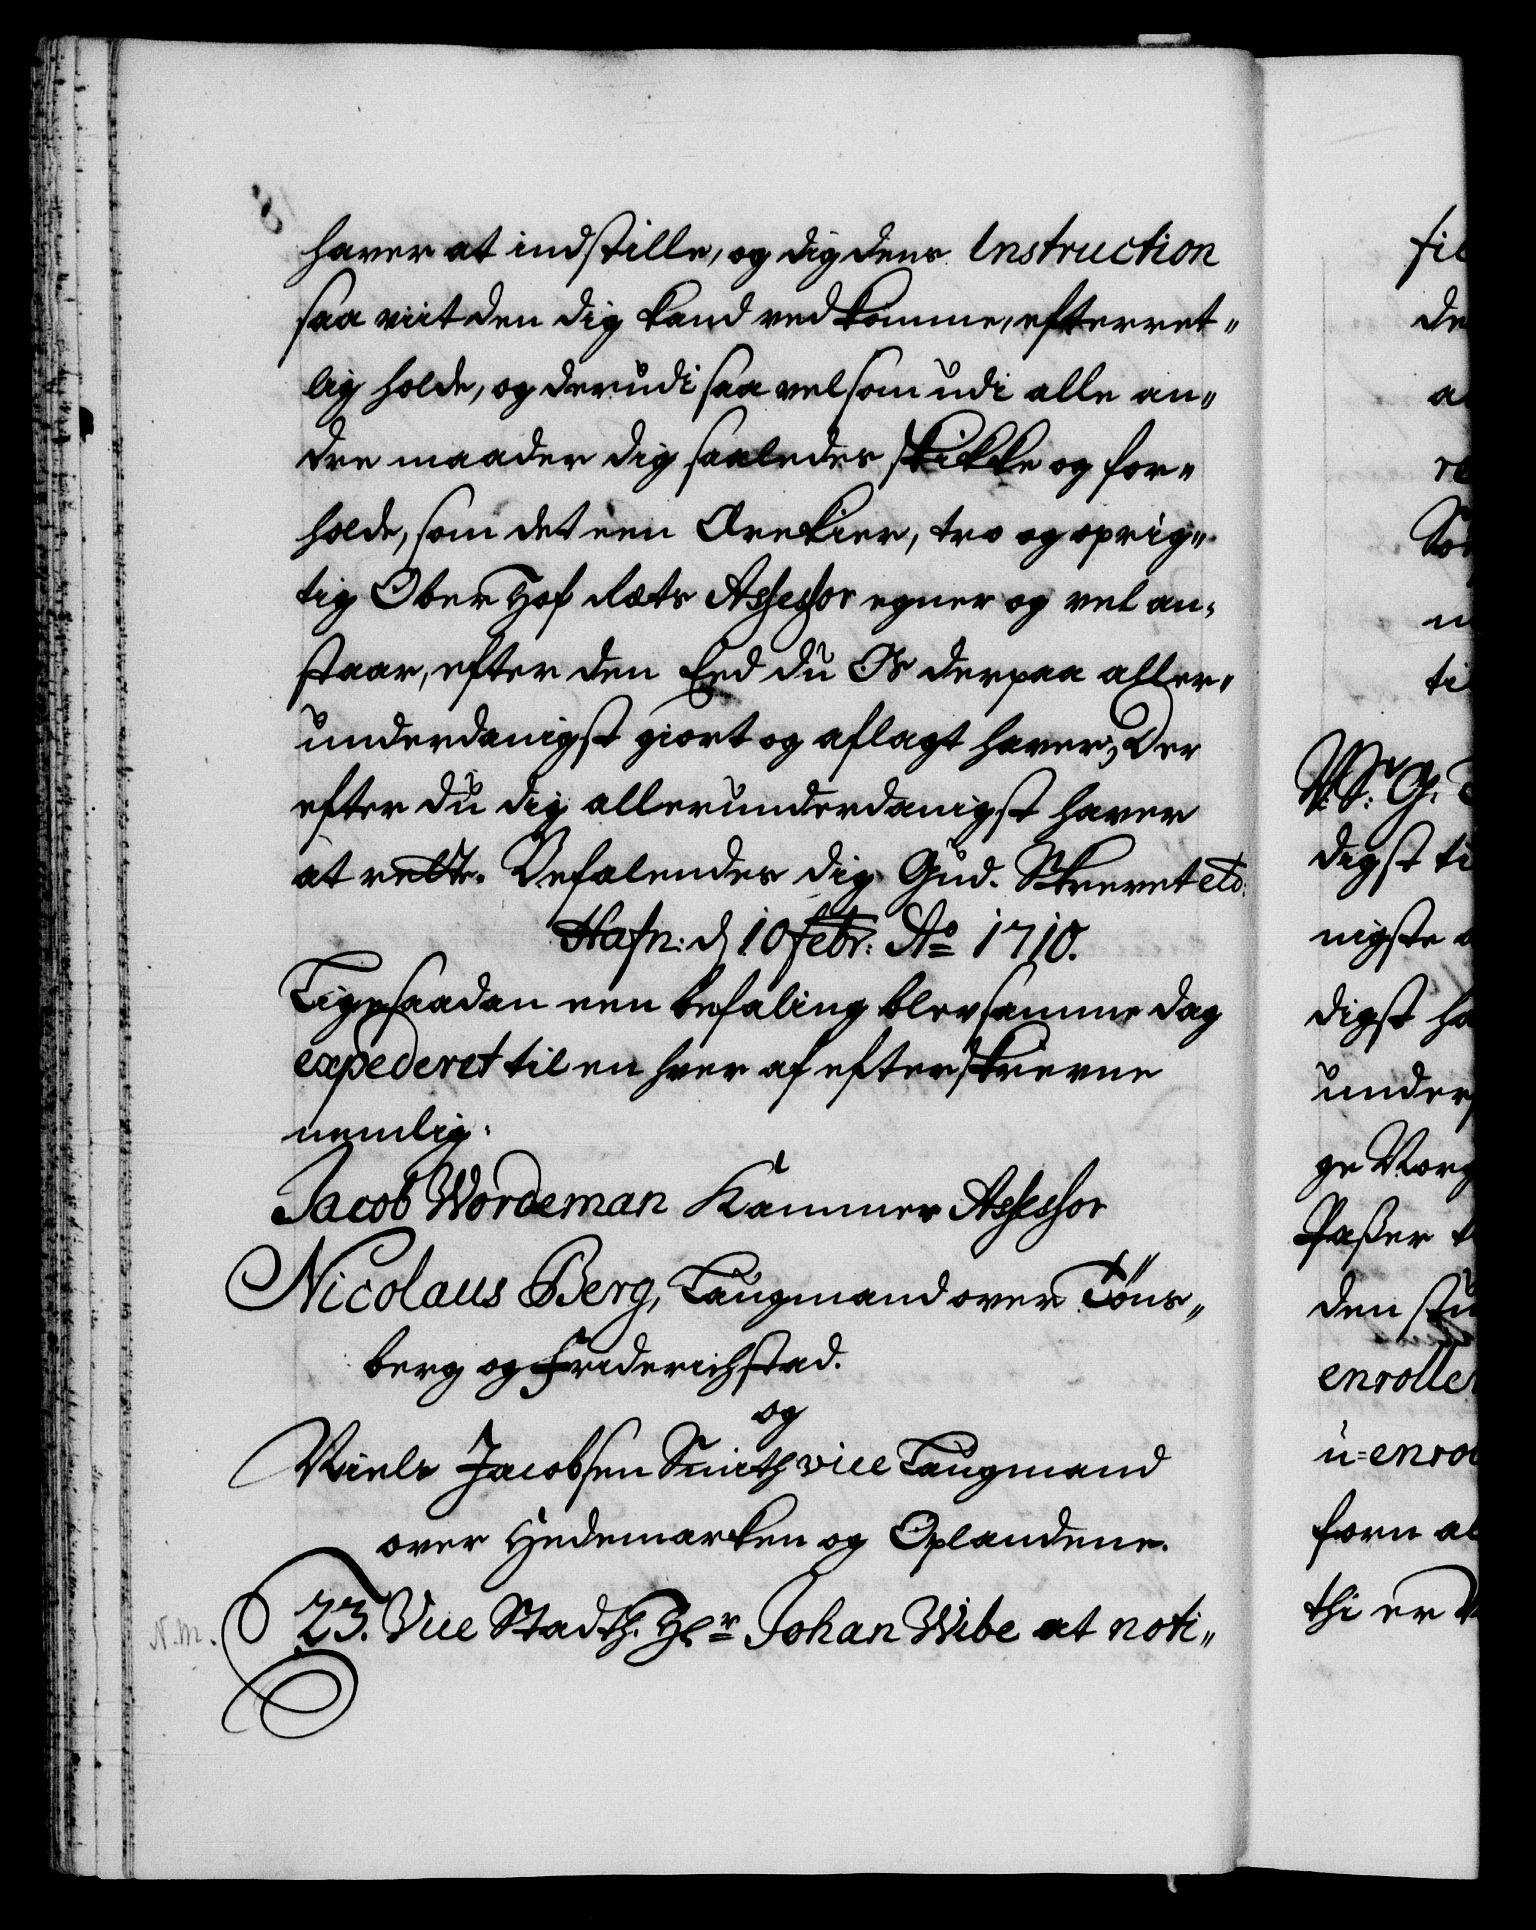 haver at indstille, og dig dens Instruction
saa viit den dig kand vedkomme, efterret„
lig holde, og derudi saa vel som udi alle an„
dre maader dig saaledes skikke og for„
holde, som det een Ærekier, tro og oprig„
tig Ober Hof Rets Assessor egner og vel an„
staar, efter den Eed du Os derpaa aller„
underdanigst giort og aflagt haver, Der
efter du dig allerunderdanigst haver
at rette. Befalendes dig Gud. Skrevet etc:
Hafn: d 10 febr: Ao 1710.
Lige saadan een befaling blev samme dag
expederet til en hver af efterskrevne
nemlig.
Jacob Wordeman Kammer Assessor
Nicolaus Berg, Laugmand over Töns„
berg og Friderichstad.
og
Niels Jacobsen Smith vice Laugmand
over Hedemarken og Oplandene.
N.m.
23. Vice Stadth. Hr Johan Wibe at noti„
fil
de
a
re
So
n
ti
V. S. G.
digst ti
nigste
digst ha
under
ge Norg
Paßer
den
enrolle
u=enro
forn al
thi er